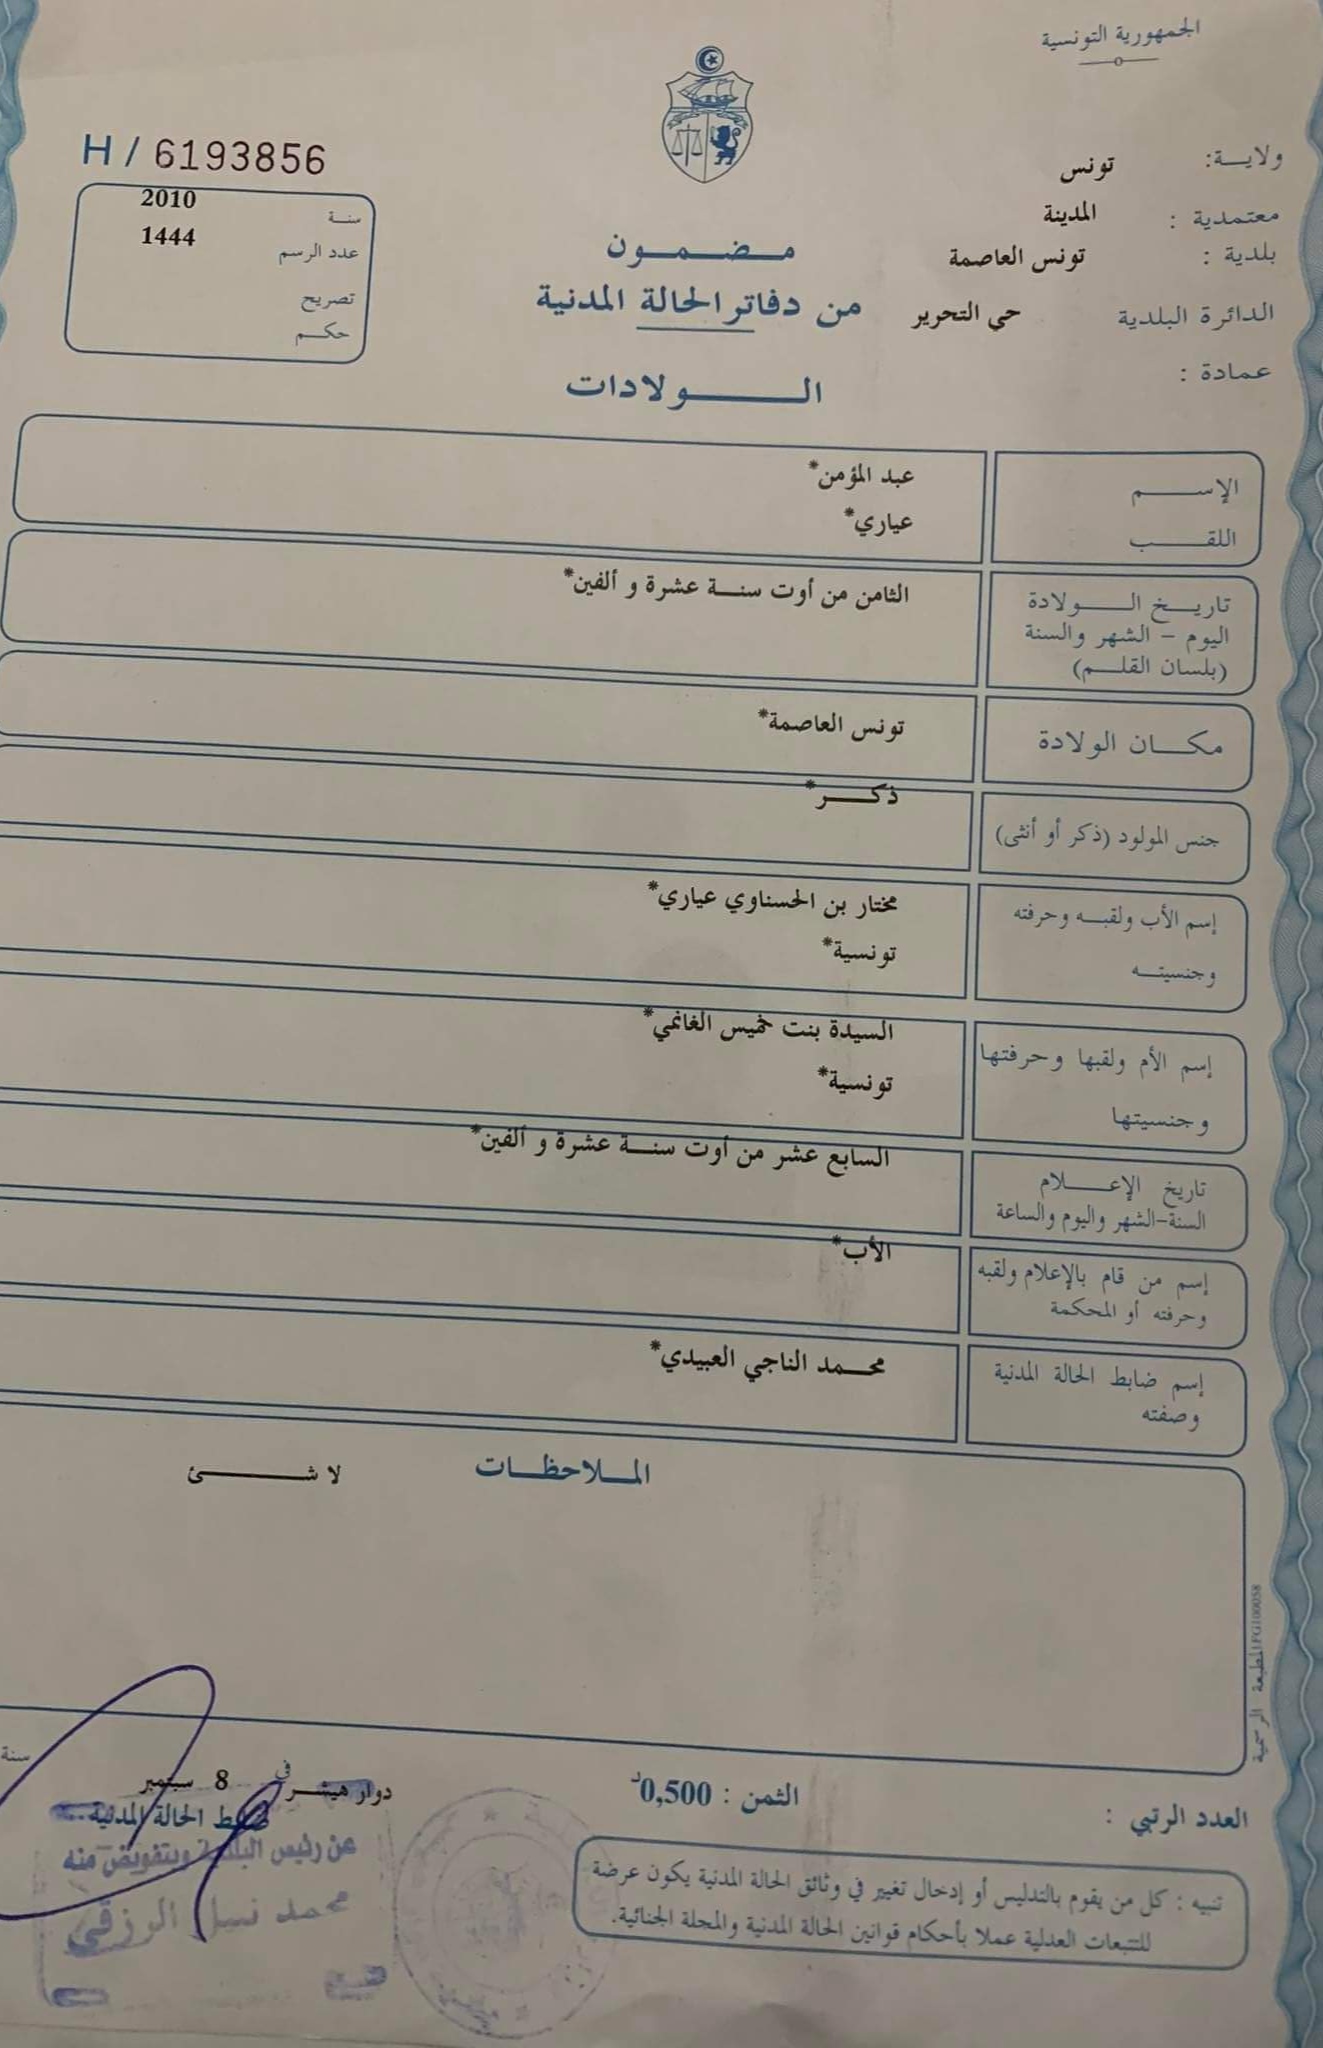 الجمهورية التونسية
ولايــة: تونس
معتمدية : المدينة
بلدية : تونس العاصمة
الدائرة البلدية حي التحرير
عمادة :
H / 6193856
سنة 2010
عدد الرسم 1444
تصريح
حكم
مضمون
من دفاتر الحالة المدنية
الولادات
الإسم عبد المؤمن*
اللقب عياري*
تاريخ الولادة الثامن من أوت سنة عشرة و ألفين*
اليوم – الشهر والسنة
(بلسان القلم)
مكان الولادة تونس العاصمة*
جنس المولود (ذكر أو أنثى) ذكر*
إسم الأب ولقبه وحرفته مختار بن الحسناوي عياري*
وجنسيته تونسية*
إسم الأم ولقبها وحرفتها السيدة بنت خميس الغانمي*
وجنسيتها تونسية*
تاريخ الإعلام السابع عشر من أوت سنة عشرة و ألفين*
السنة-الشهر واليوم والساعة
إسم من قام بالإعلام ولقبه الأب*
وحرفته أو المحكمة
إسم ضابط الحالة المدنية محمد الناجي العبيدي*
وصفته
الملاحظات لا شئ
المطبعة الرسمية
العدد الرتبي :
الثمن : 0,500د
دوار هيشر في 8 سبتمبر سنة
ضابط الحالة المدنية
عن رئيس البلدية وبتفويض منه
محمد الرزقي
تنبيه : كل من يقوم بالتدليس أو إدخال تغيير في وثائق الحالة المدنية يكون عرضة
للتتبعات العدلية عملا بأحكام قوانين الحالة المدنية والمجلة الجنائية.